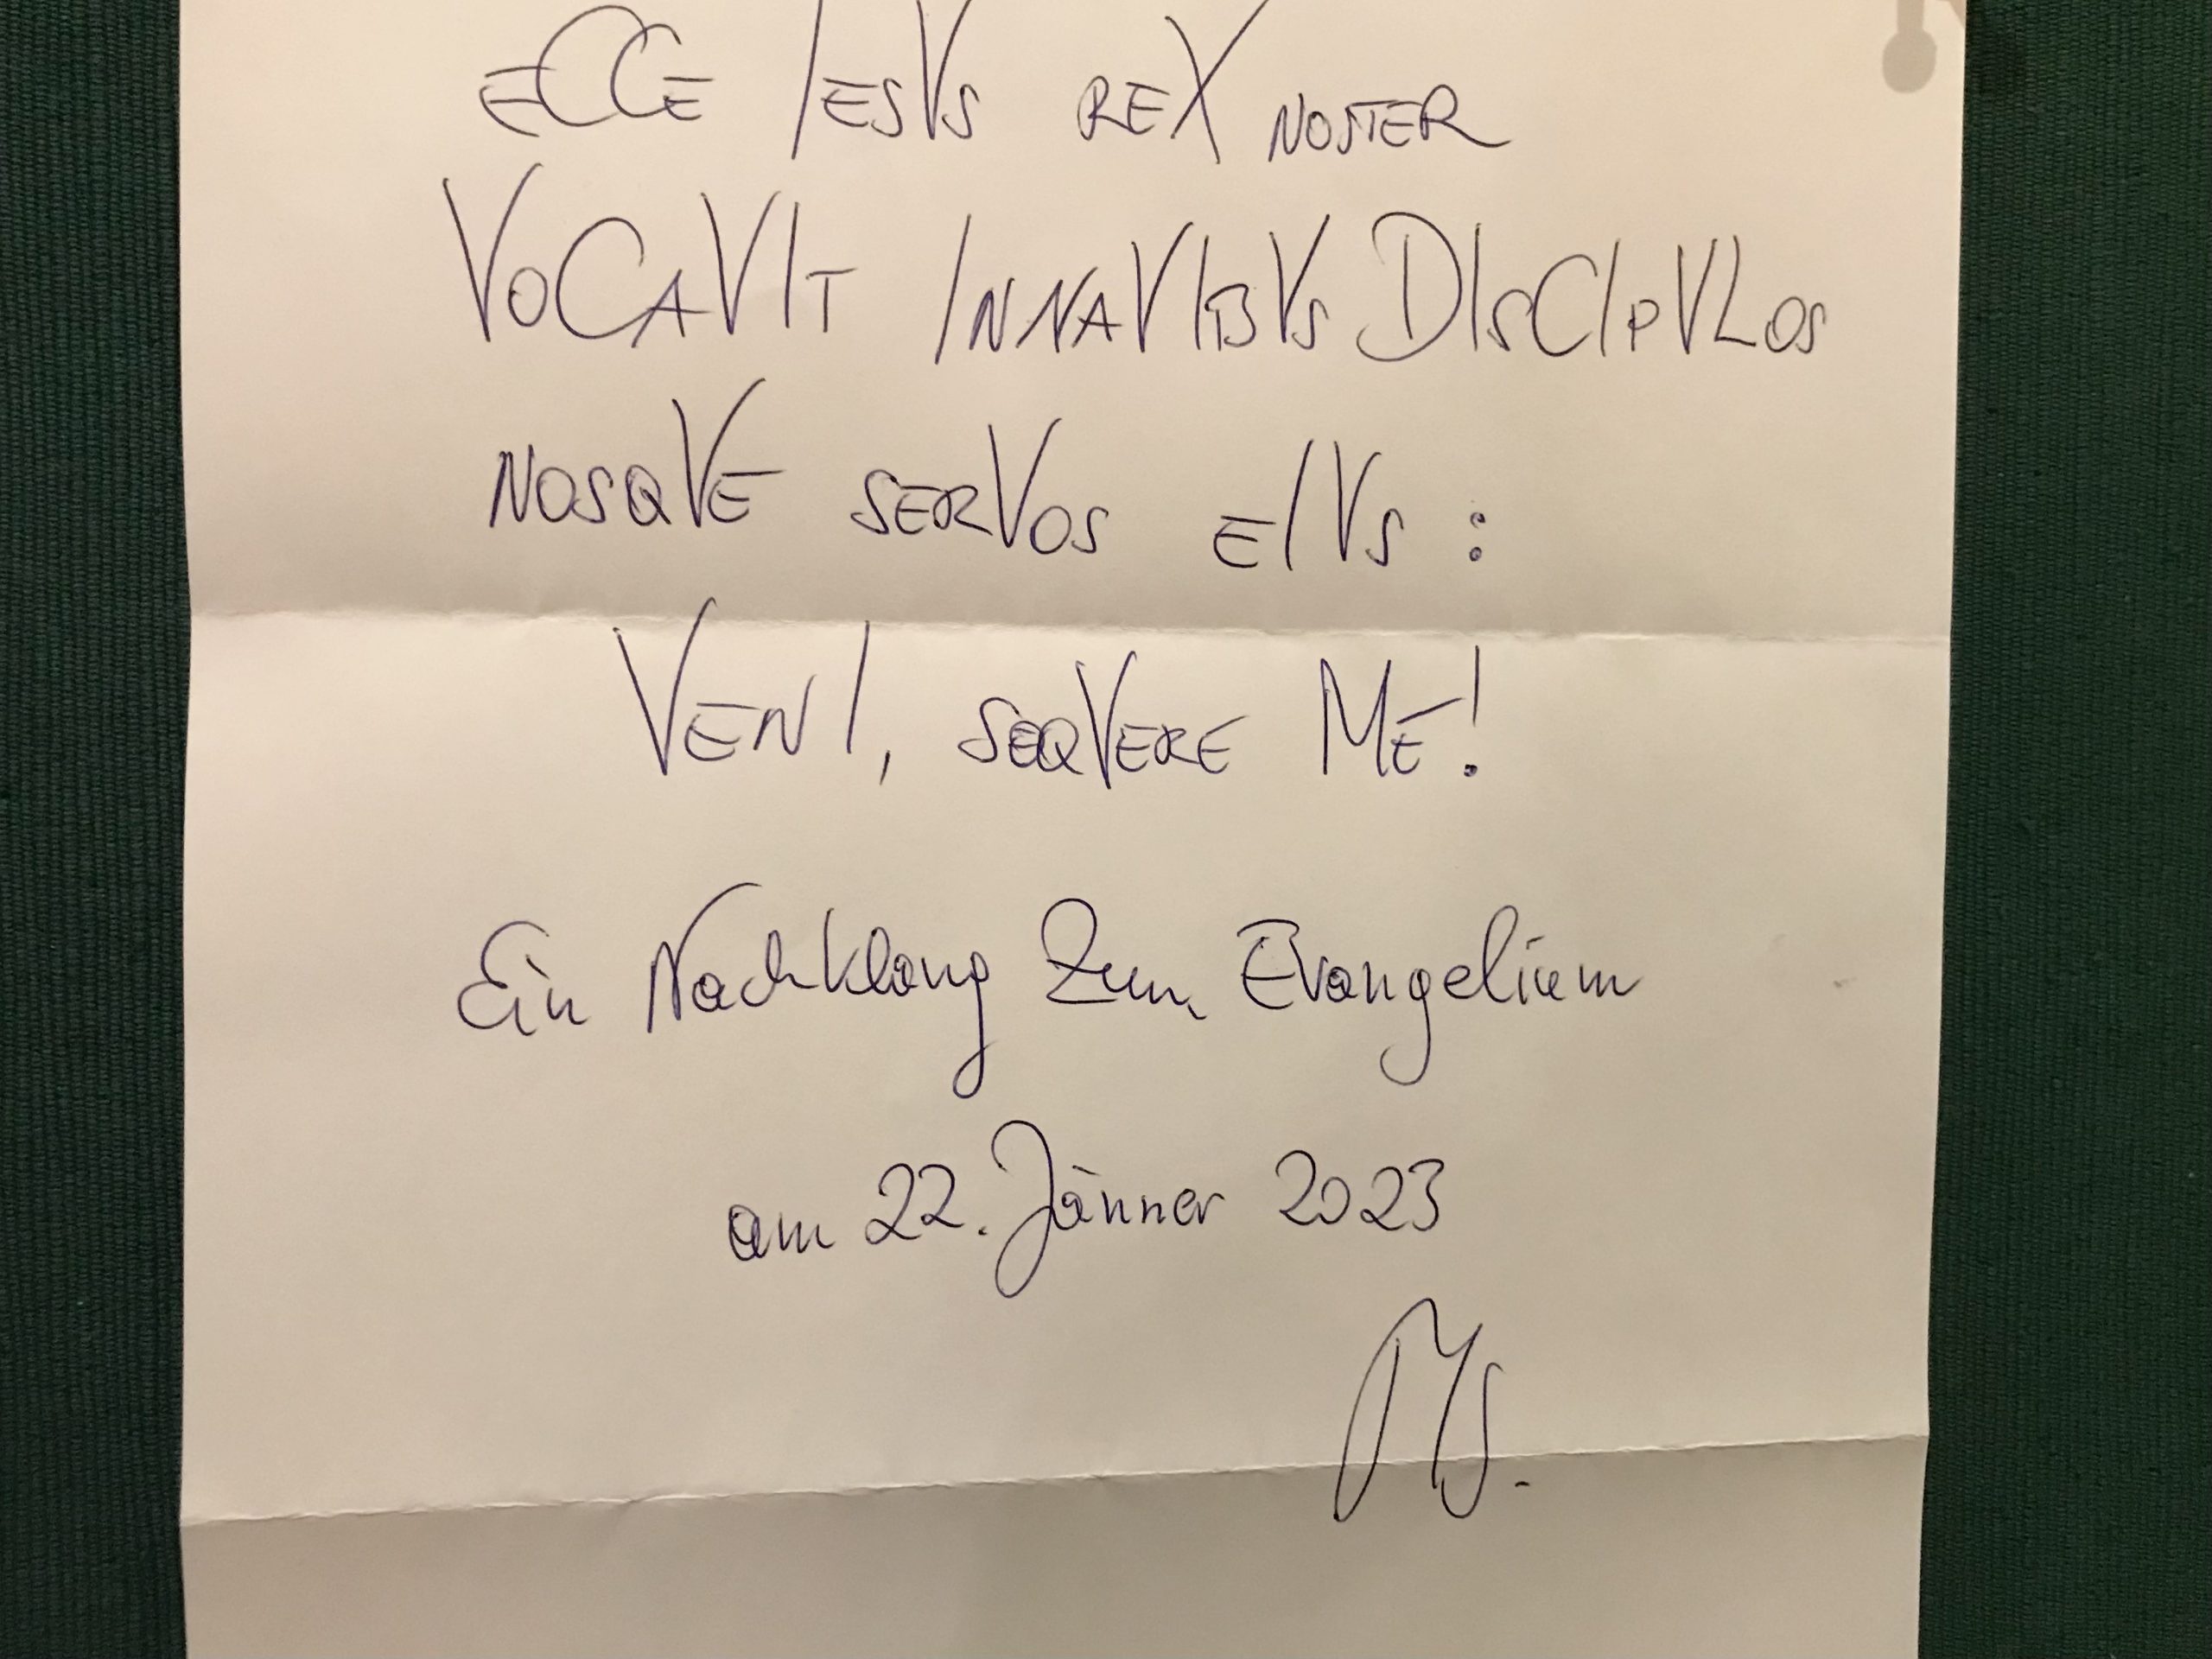 eCCe IesVs reX noster
VoCaVIt InnaVIbVs DIsCIpVLos
nosqVe serVos eIVs :
VenI, seqVere Me!
Ein Nachklang zum Evangelium
am 22. Jänner 2023
MS.